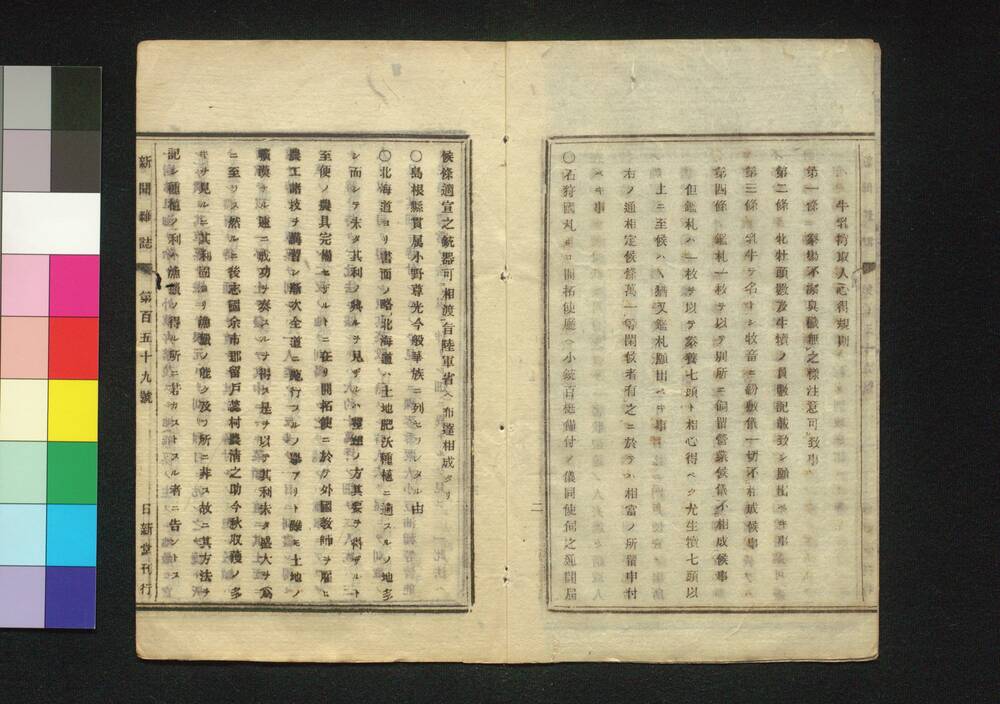 牛乳搾取人心得規則
第一條 
第二條 牝牡頭數及牛犢ノ員數記載致シ願出ベキ事
第三條 乳牛ヲ名トシ牧畜ニ紛敷儀一切不相成候事
第四條 鑑札一枚ヲ以テ別所ニ飼留營業候儀不相成候事
但鑑札ハ一枚ヲ以テ豢養七頭ト相心得ベク尤生犢七頭以
上ニ至候ハヽ猶又鑑札願出ベキ事
右ノ通相定候條萬一等閑候者有之ニ於テハ相當ノ所置申付
ベキ事
〇石狩國札ホロ開拓使廳ヘ小銃百挺備付ノ儀同使伺之通聞届
二
候條適宜之銃器可相渡旨陸軍省ヘ布達相成タリ
〇島根縣貫属小野尊光今般華族ニ列セラレタル由
〇北海道ヨリ書面ノ略北海道ハ土地肥沃種植ニ適スルノ地多
シ而シテ未タ其利ノ興ルヲ見ザルハ種藝ノ方其宜ヲ得ザルト
至便ノ農具完備セザルトニ在リ開拓使ニ於テ外國教師ヲ雇ヒ
農工諸技ヲ講習シ漸次全道ニ施行スルノ擧アリト雖モ土地ノ
廣漠ナル速ニ成功ヲ奏スルヲ得ス是ヲ以テ其利未タ盛大ヲ爲
ニ至ラス然ルニ後志國余市郡留戸蕊村農清之助今秋収穫ノ多
キヲ見ルニ其利固ヨリ漁獵ノ能ク及フ所ニ非ス故ニ其方法ヲ
記シ種植ノ利ハ漁獵ノ得ル所ニ若カストスル者ニ告ントス
新聞雜誌 第百五十九號 日新堂刊行